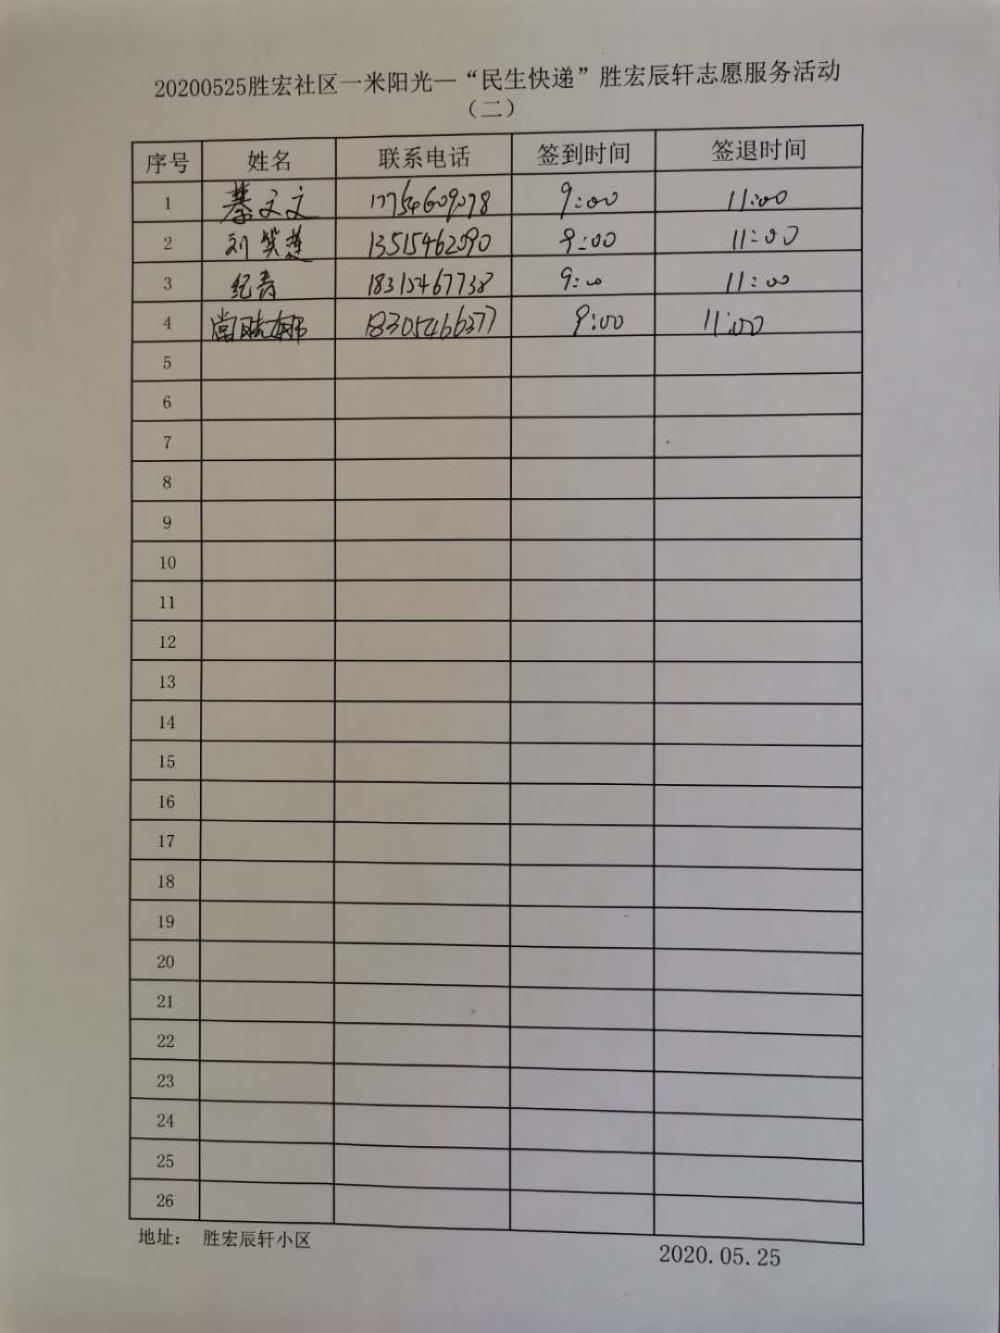 20200525胜宏社区一米阳光—“民生快递”胜宏辰轩志愿服务活动
（二）
序号 姓名 联系电话 签到时间 签退时间
1 綦文文 17754609078 9:00 11:00
2 刘笑莲 13515462090 9:00 11:00
3 纪青 9:00 11:00
4 18305466377 9:00 11:00
5
6
7
8
9
10
11
12
13
14
15
16
17
18
19
20
21
22
23
24
25
26
地址： 胜宏辰轩小区
2020.05.25